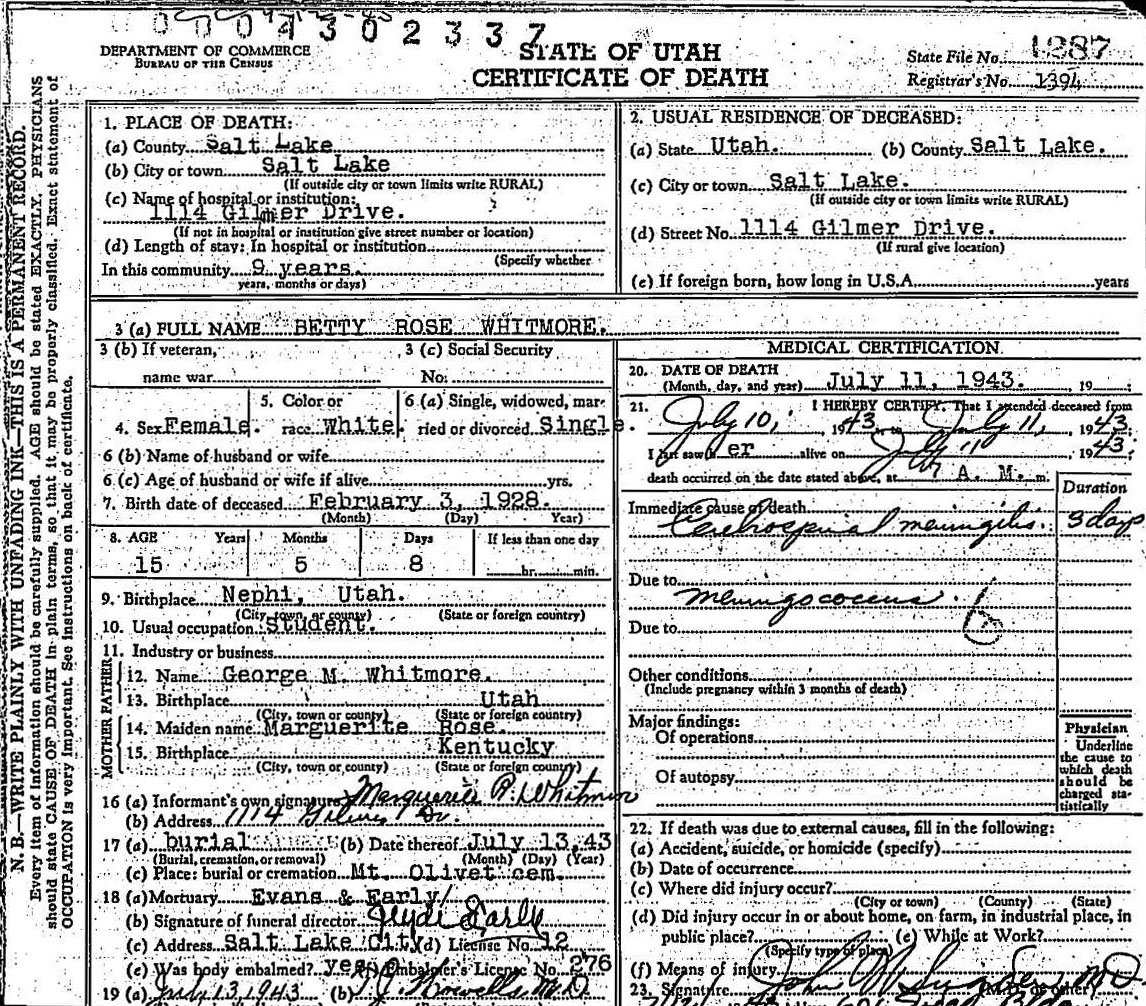 4 3 0 2 3 3 7
DEPARTMENT OF COMMERCE
BUREAU OF THE CENSUS
STATE OF UTAH
CERTIFICATE OF DEATH
State File No. 1287
Registrar's No. 1394
N. B.—WRITE PLAINLY WITH UNFADING INK—THIS IS A PERMANENT RECORD.
Every item of information should be carefully supplied. AGE should be stated EXACTLY. PHYSICIANS
should state CAUSE OF DEATH in plain terms, so that it may be properly classified. Exact statement of
OCCUPATION is very important. See instructions on back of certificate.
1. PLACE OF DEATH:
(a) County Salt Lake
(b) City or town Salt Lake
(If outside city or town limits write RURAL)
(c) Name of hospital or institution:
1114 Gilmer Drive.
(If not in hospital or institution give street number or location)
(d) Length of stay: In hospital or institution
(Specify whether
In this community 9 years.
years, months or days)
2. USUAL RESIDENCE OF DECEASED:
(a) State Utah. (b) County Salt Lake.
(c) City or town Salt Lake.
(If outside city or town limits write RURAL)
(d) Street No. 1114 Gilmer Drive.
(If rural give location)
(e) If foreign born, how long in U.S.A. years
3 (a) FULL NAME BETTY ROSE WHITMORE.
3 (b) If veteran, 3 (c) Social Security
name war No.
4. Sex Female. 5. Color or race White. 6 (a) Single, widowed, married or divorced Single.
6 (b) Name of husband or wife
6 (c) Age of husband or wife if alive yrs.
7. Birth date of deceased February 3, 1928.
(Month) (Day) Year)
8. AGE Years Months Days If less than one day
15 5 8 hr. min.
9. Birthplace Nephi, Utah.
(City, town, or county) (State or foreign country)
10. Usual occupation Student.
11. Industry or business
FATHER
12. Name George M. Whitmore.
13. Birthplace Utah
(City, town or county) (State or foreign country)
MOTHER
14. Maiden name Marguerite Rose.
15. Birthplace Kentucky
(City, town or county) (State or foreign country)
16 (a) Informant's own signature Marguerite R. Whitmore
(b) Address 1114 Gilmer Dr.
17 (a) burial (b) Date thereof July 13, 43
(Burial, cremation, or removal) (Month) (Day) (Year)
(c) Place: burial or cremation Mt. Olivet cem.
18 (a) Mortuary Evans & Early
(b) Signature of funeral director Early
(c) Address Salt Lake City (d) License No. 12
(e) Was body embalmed? yes (f) Embalmer's License No. 276
19 (a) July 13, 1943 (b) M.D.
MEDICAL CERTIFICATION
20. DATE OF DEATH
(Month, day, and year) July 11, 1943. , 19
21. I HEREBY CERTIFY, That I attended deceased from
July 10, , 1943, to July 11, , 1943.
I last saw h er alive on July 11 , 1943;
death occurred on the date stated above, at A. M. m.
Duration
Immediate cause of death
Cerebrospinal meningitis. 3 days
Due to
meningococcus.
Due to
Other conditions
(Include pregnancy within 3 months of death)
Major findings:
Of operations
Of autopsy
Physician
Underline
the cause to
which death
should be
charged sta-
tistically
22. If death was due to external causes, fill in the following:
(a) Accident, suicide, or homicide (specify)
(b) Date of occurrence
(c) Where did injury occur?
(City or town) (County) (State)
(d) Did injury occur in or about home, on farm, in industrial place, in
public place? (e) While at Work?
(Specify type of place)
(f) Means of injury
23. Signature John M.D.
(M. D. or other)